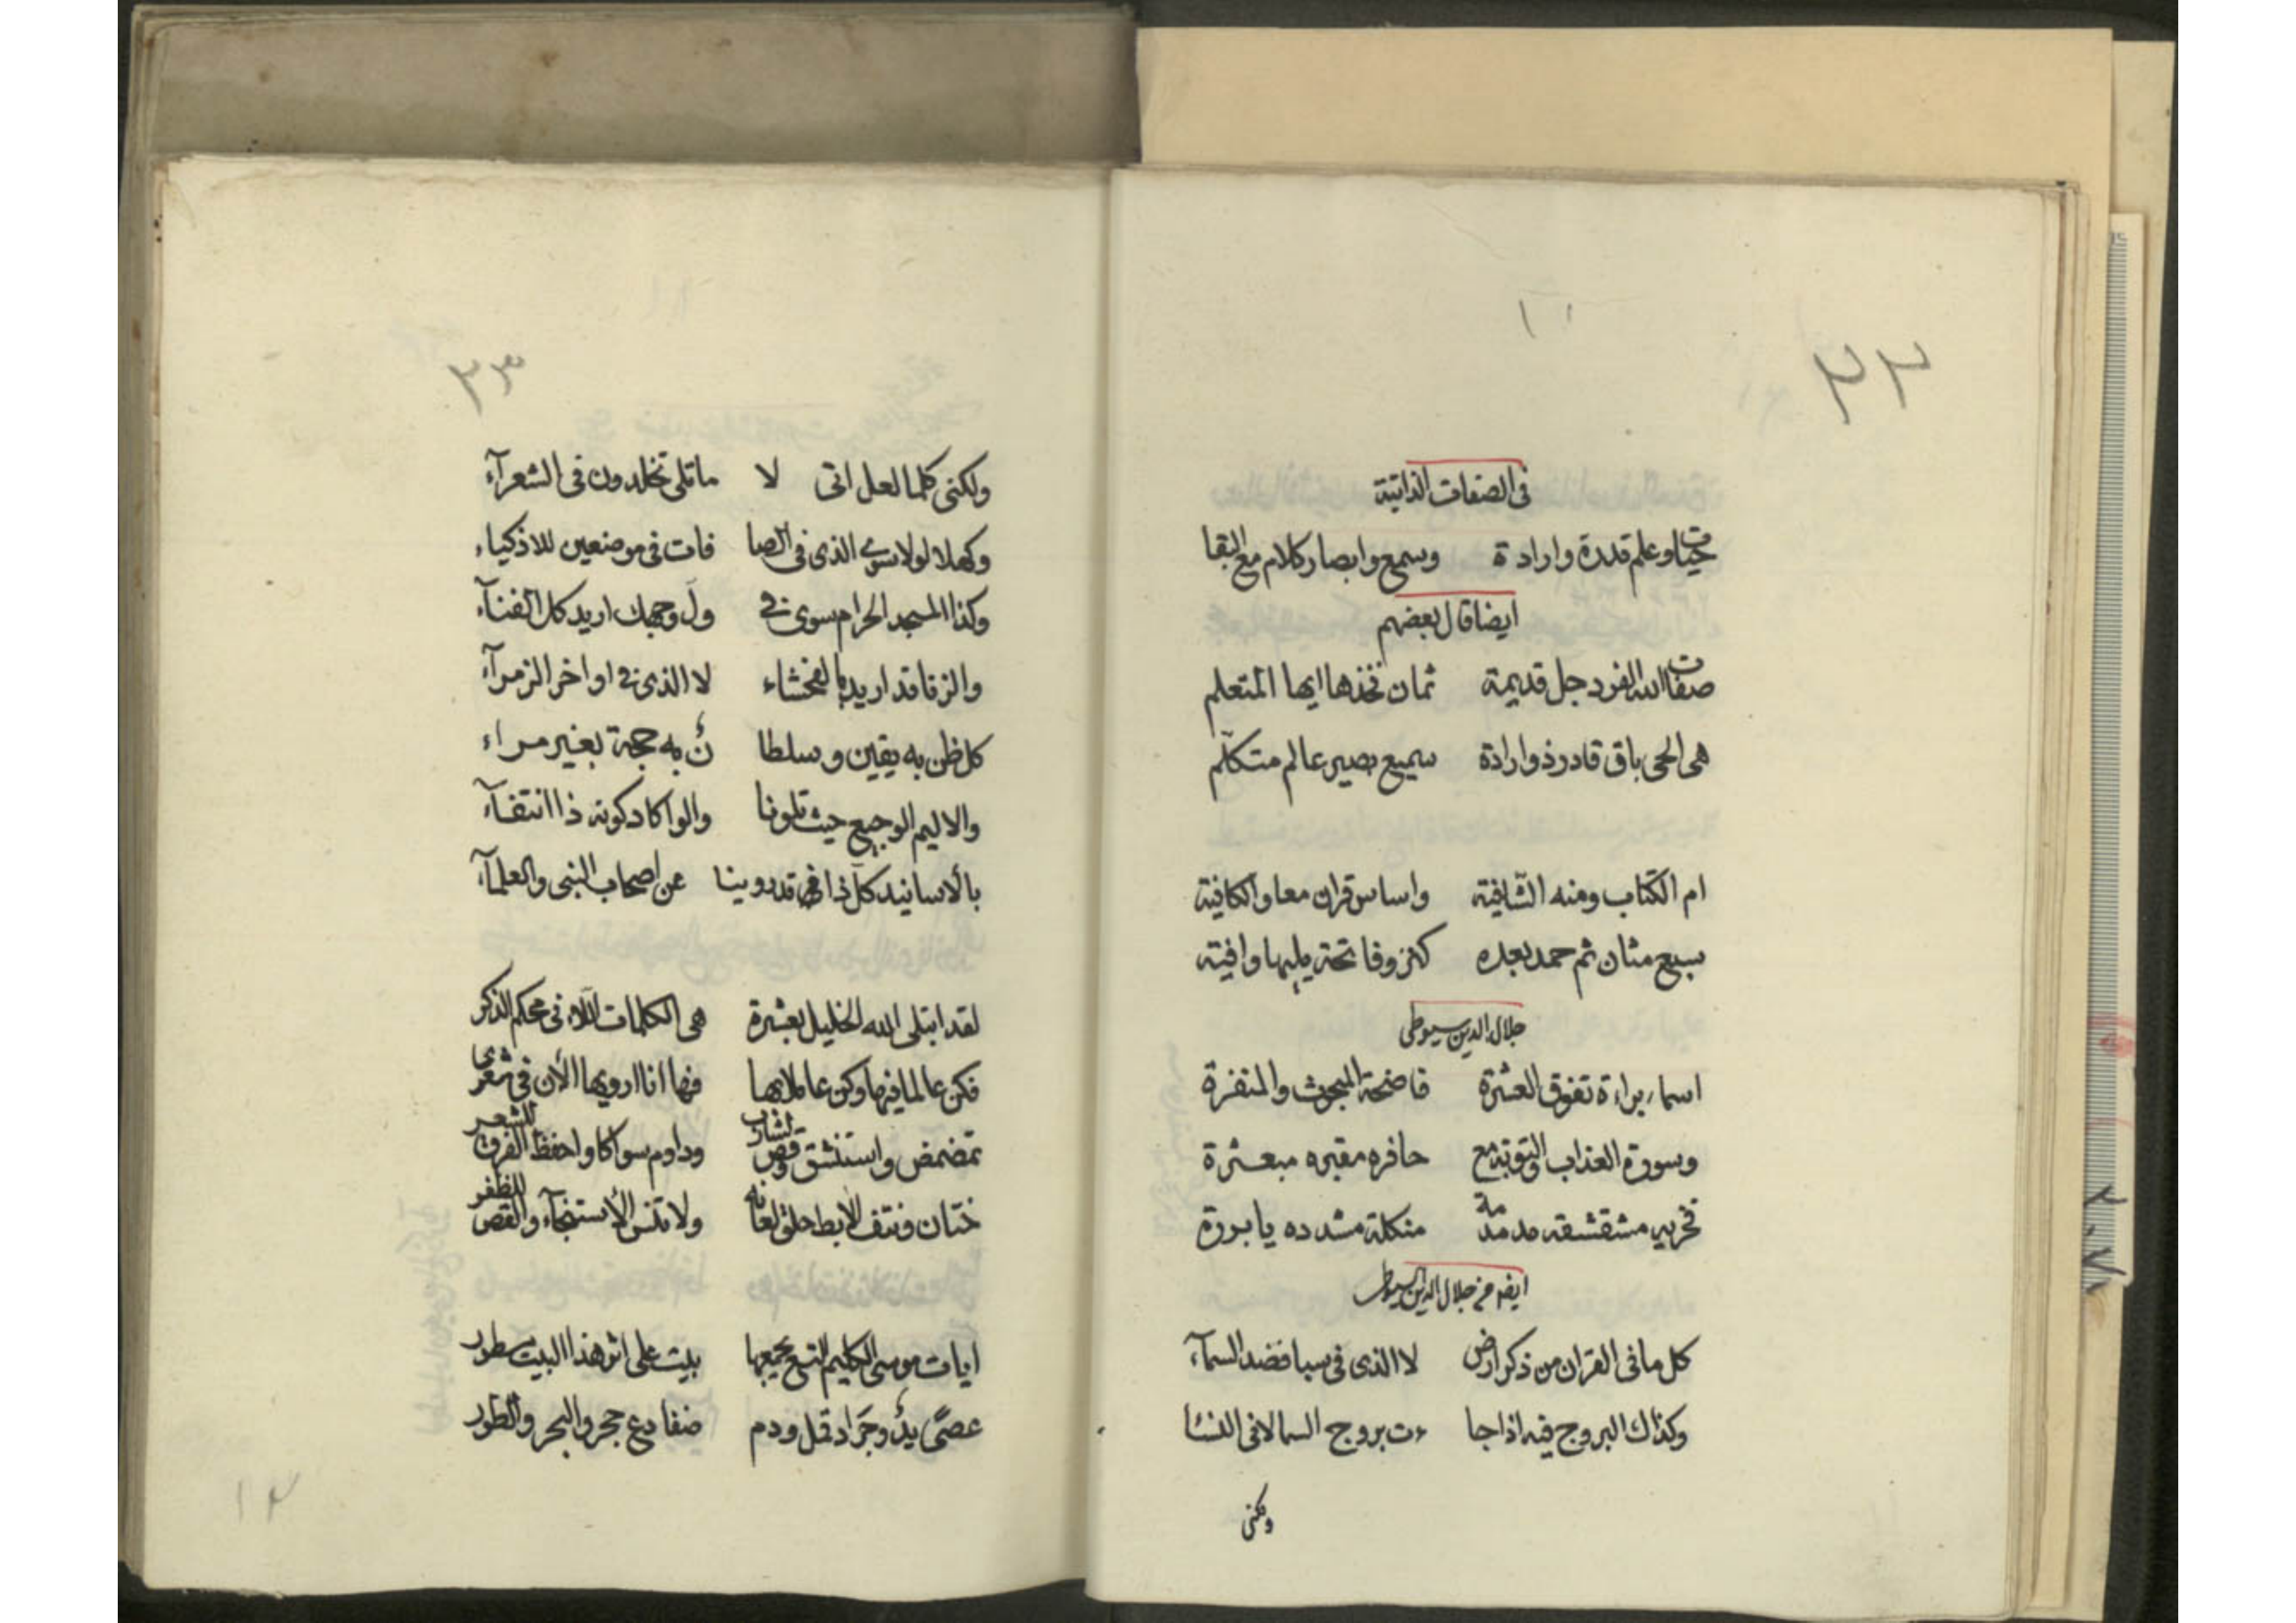 ٣٢
١٠
فى الصفات الذاتية
حياة وعلم قدرة وارادة وسمع وابصار كلام مع البقا
ايضا قال بعضهم
صفات الله الفرد جل قديمة ثمان فخذها ايها المتعلم
هى الحى باق قادر ذو ارادة سميع بصير عالم متكلم
ام الكتاب ومنه الشافية واساس قران معا والكافية
سبع مثان ثم حمد بعده كنز وفاتحة يليها وافية
جلال الدين سيوطى
اسماء براءة تفوق العشرة فاضحة المبحوث والمنفرة
وسورة العذاب والتوبة مع حافره مقبره مبعثرة
تخريب مشقشقة مدمدمة منكلة مشدده يا بررة
ايضا من جلال الدين السيوطى
كل ما فى القران من ذكر ارض لا الذى فى سبا فضد السمآء
وكذاك البروج فيه اذا جا ءت بروج السما لا فى النسا
ولكنى
٣٣
ولكنى كلما لعل اتى لا ما تلى تخلدون فى الشعرآء
وكهلا لولا سوى الذى فى الصا فات فى موضعين للاذكياء
وكذا المسجد الحرام سوى فى ول وجهك اريد كل الفنآء
والزنا قد اريد بالفحشاء لا الذى فى اواخر الزمرآء
كل ظن به يقين وسلطا ن به حجة بغير مراء
والاليم الوجيع حيث تلونا والوا كاد كونه ذا انتفآء
بالأسانيد كل ذا قد روينا عن اصحاب النبى والعلمآء
لقد ابتلى الله الخليل بعشرة هى الكلمات اللاء فى محكم الذكر
فكن عالما فيها وكن عاملا بها فها انا ارويها الأن فى شعرى
تمضمض واستنشق وقص لشارب وداوم سواكا واحفظ الفرق للشعر
ختان ونتف الابط حلق لعانه ولا تنس الأستنجآء والقص للظفر
ايات موسى الكليم التسع يجمعها بيت على اثر هذا البيت سطور
عصى يد وجراد قمل ودم ضفادع حجر والبحر والطور
١٢